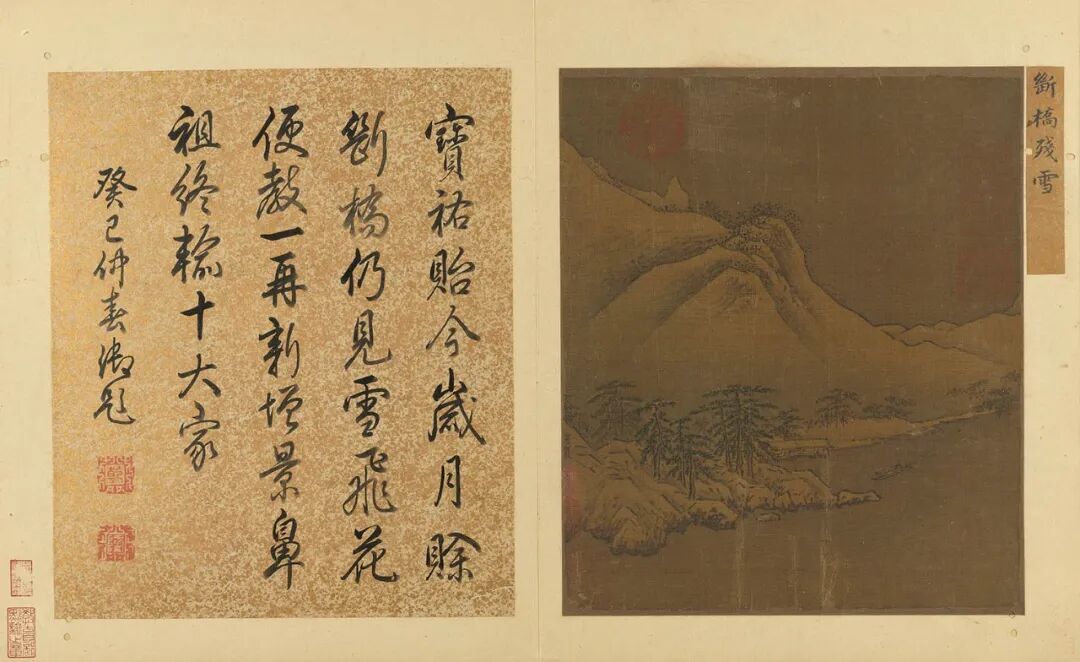 斷橋殘雪
寶祐貽今歲月賒
斷橋仍見雪飛花
便教一再新增景鼻
祖終輸十大家
癸巳仲春御題